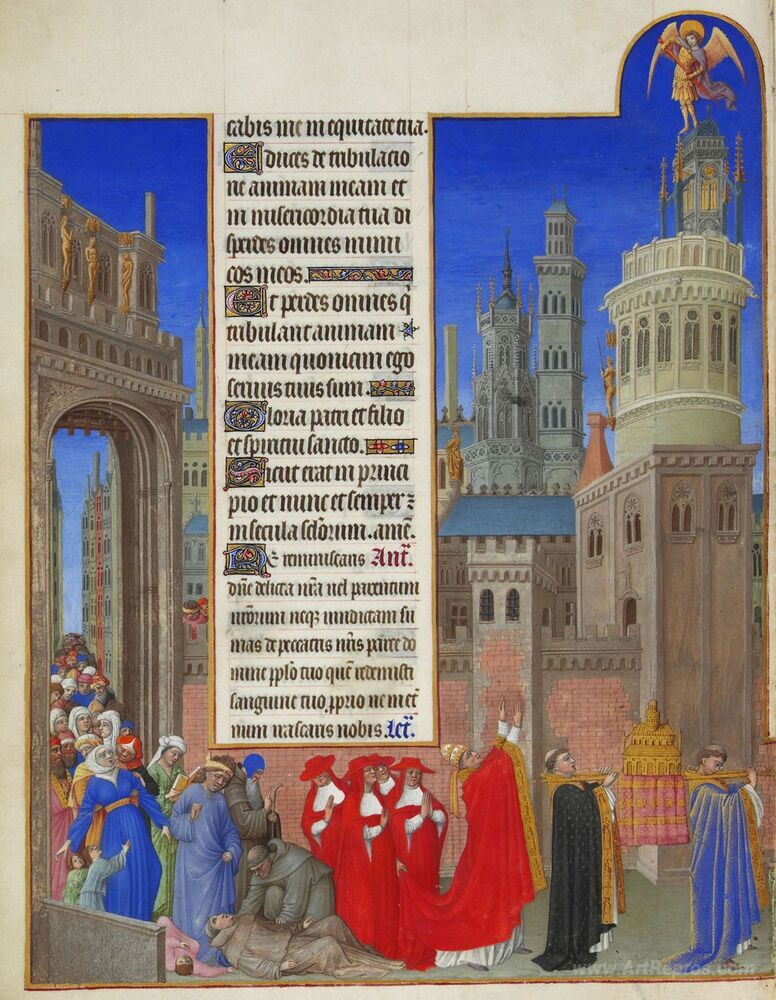 cabis me in equitate tua.
Educes de tribulacio
ne animam meam et
in misericordia tua di
sperdes omnes inimi
cos meos.
Et perdes omnes q̄
tribulant animam
meam quoniam ego
servus tuus sum.
Gloria patri et filio
et spiritui sancto.
Sicut erat in princi
pio et nunc et semper ⁊
in secula sclorum. amē.
Ne reminiscaris Ant̄.
dn̄e delicta nr̄a vel parentum
nr̄orum neqȝ vindictam su
mas de peccatis nr̄is parce do
mine pplō tuo quē redemisti
sanguine tuo pp̄rio ne in et
num irascaris nobis. Let̄.
www.ArtRepros.com